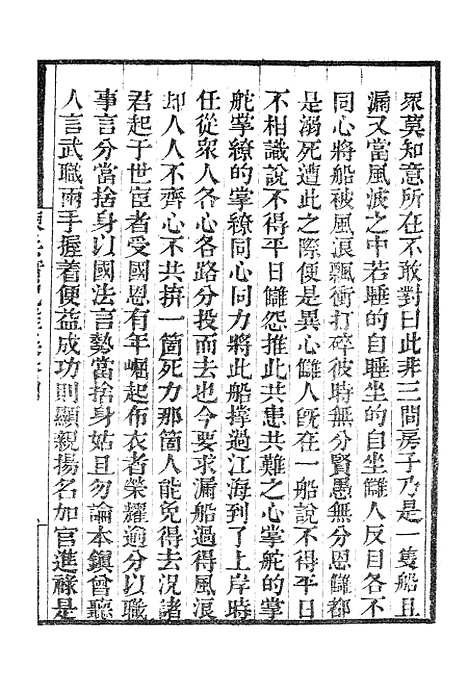 眾莫知意所在不敢對曰此非三間房子乃是一隻船且
漏又當風波之中若睡的自睡坐的自坐讎人反目各不
同心將船被風浪飄衝打碎彼時無分賢愚無分恩讎都
是溺死遭此之際便是異心讎人旣在一船說不得平日
不相識說不得平日讎怨推此共患共難之心掌舵的掌
舵掌繚的掌繚同心同力將此船撑過江海到了上岸時
任從衆人各心各路分投而去也今要求漏船過得風浪
却人人不齊心不共拚一箇死力那箇人能免得去況諸
君起于世臣者受國恩有年崛起布衣者榮耀過分以職
事言分當捨身以國法言勢當捨身姑且勿論本鎭曾聽
人言武職兩手握着便益成功則顯親揚名加官進祿是